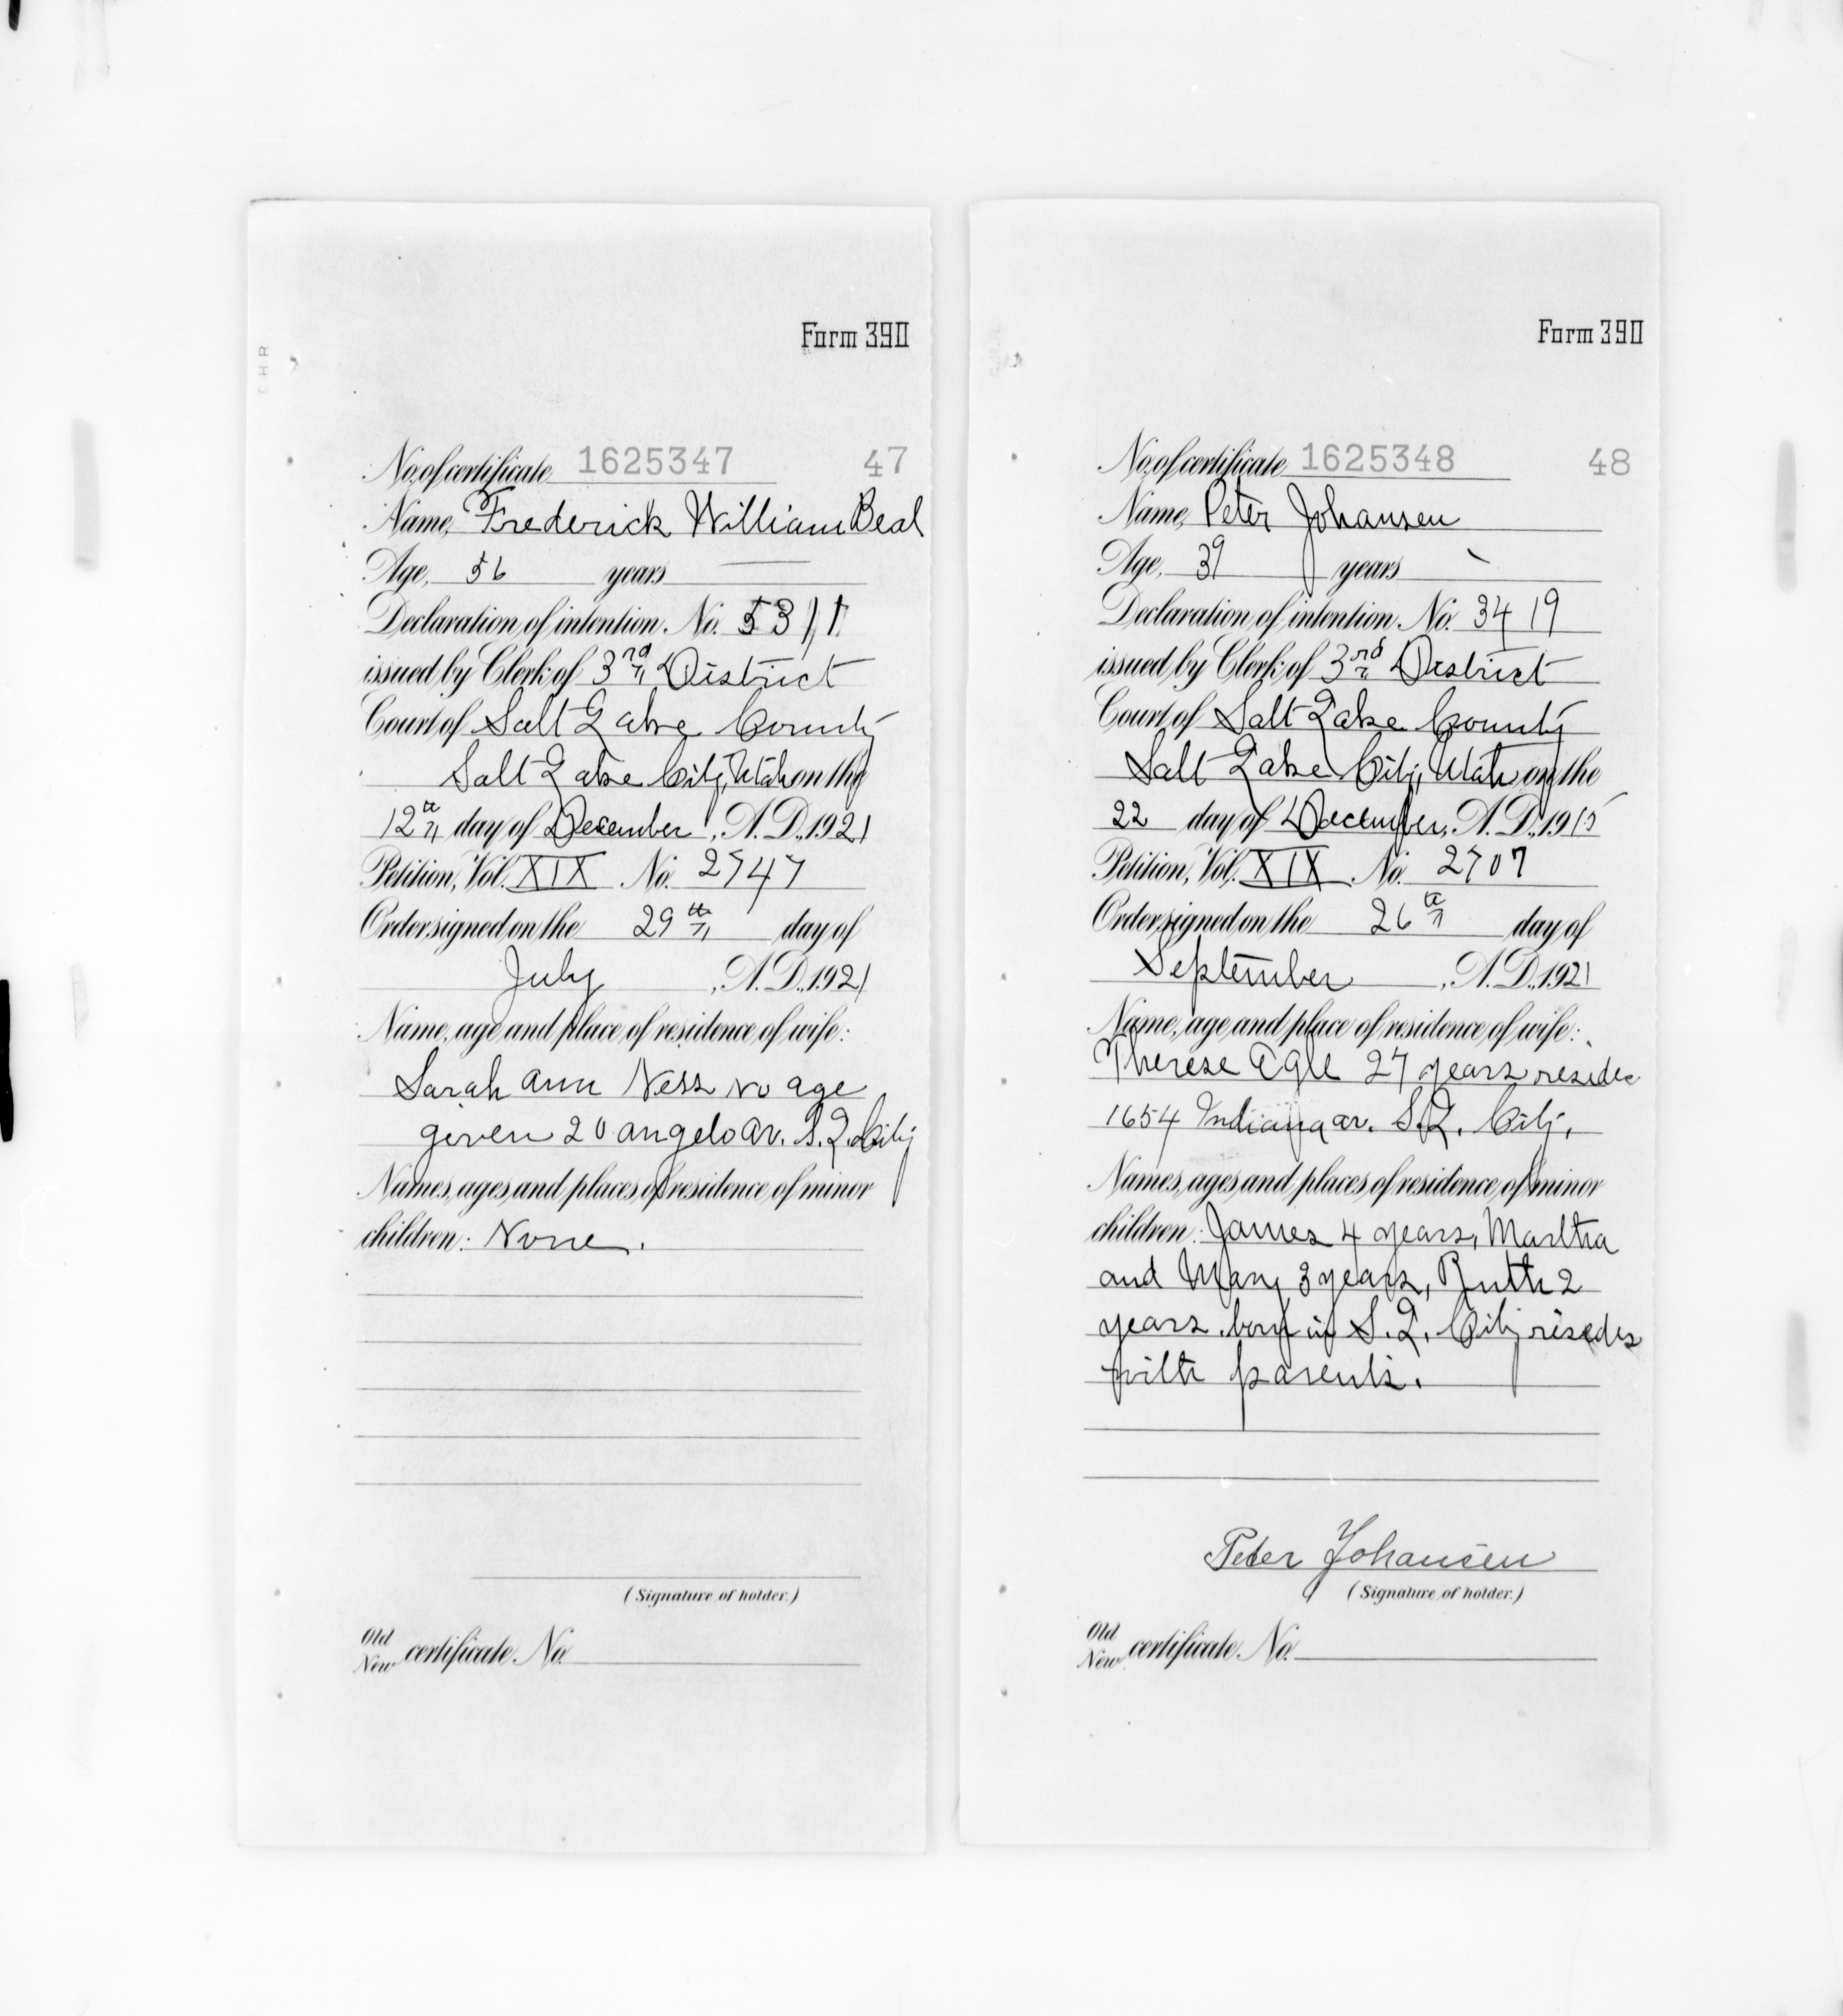 Form 390
No. of certificate 1625347 47
Name, Frederick William Beal
Age, 56 years
Declaration of intention No. 5311
issued by Clerk of 3rd District
Court of Salt Lake County
Salt Lake City, Utah on the
12th day of December, A. D., 1921
Petition, Vol. XIX No. 2747
Order signed on the 29th day of
July, A. D., 1921
Name, age and place of residence of wife:
Sarah Ann Ness no age
given 20 Angelo Av. S. L. City
Names, ages and places of residence of minor
children: None.
(Signature of holder.)
Old
New certificate No.
Form 390
No. of certificate 1625348 48
Name, Peter Johansen
Age, 39 years
Declaration of intention No. 3419
issued by Clerk of 3rd District
Court of Salt Lake County
Salt Lake City, Utah on the
22 day of December, A. D., 1915
Petition, Vol. XIX No. 2707
Order signed on the 26th day of
September, A. D., 1921
Name, age and place of residence of wife:
Therese Egle 27 years resides
1654 Indiana av. S. L. City.
Names, ages and places of residence of minor
children: James 4 years, Martha
and Mary 3 years, Ruth 2
years, born in S. L. City resides
with parents.
Peter Johansen
(Signature of holder.)
Old
New certificate No.